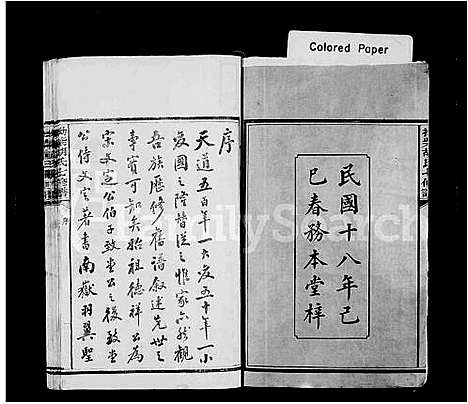 Colored Paper
民國十八年己
巳春務本堂梓
序
天道五百年一大變五十年一小
變國之隆替從之惟家亦然觀
吾族歷修舊譜敘述先世之
事實可知矣始祖德祥公為
宋文定公伯子致堂公之後致堂
公侍文定著書南嶽羽翼聖
序
FamilySearch